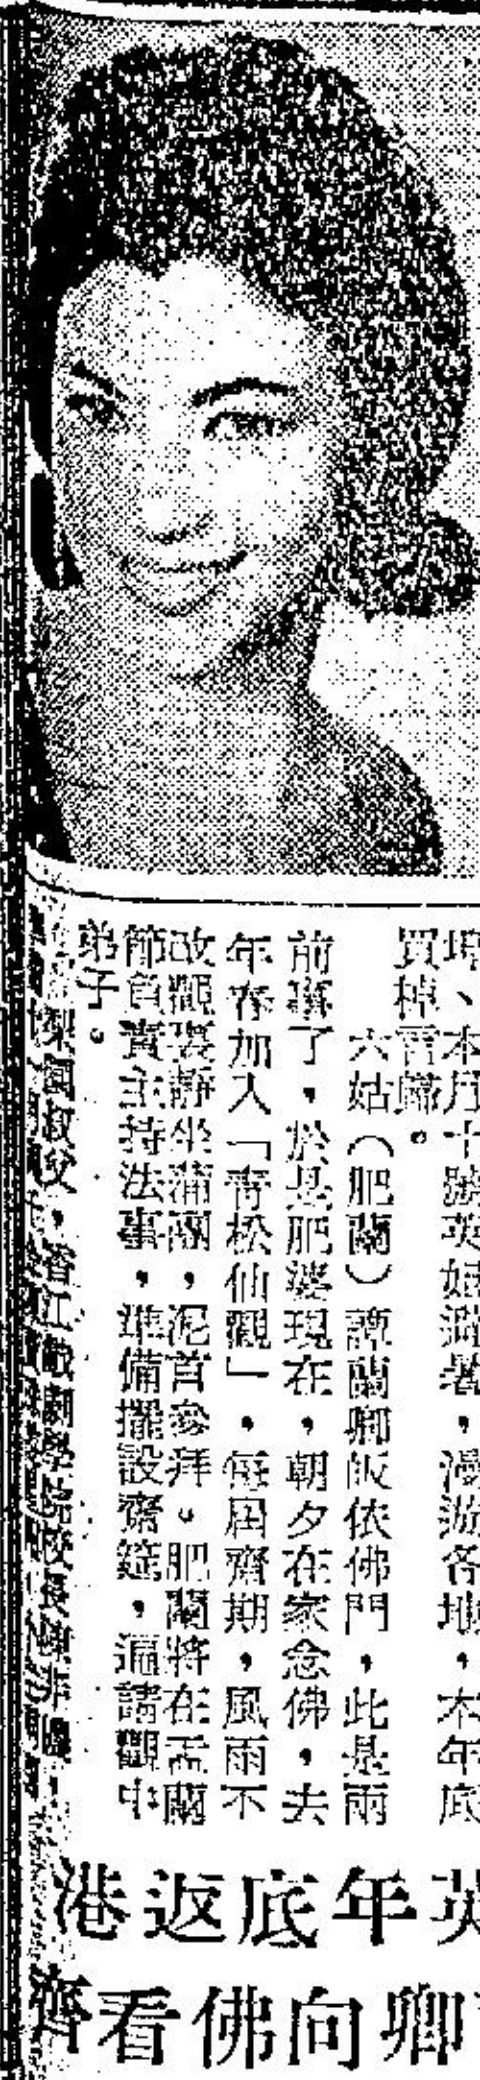 埠、本月十號英姐避暑，漫游各地，本年底
買棹言歸。
六姑（肥蘭）譚蘭卿皈依佛門，此是兩
前事了，於是肥婆現在，朝夕在家念佛，去
年春加入「青松仙觀」，每屆齋期，風雨不
改觀裝靜坐蒲團，泥首參拜。肥蘭將在盂蘭
節負責主持法事，準備擺設齋筵，遍請觀中
弟子。
叔父，香江戲劇學院校長陳非儂，
英年底返港
卿向佛看齊